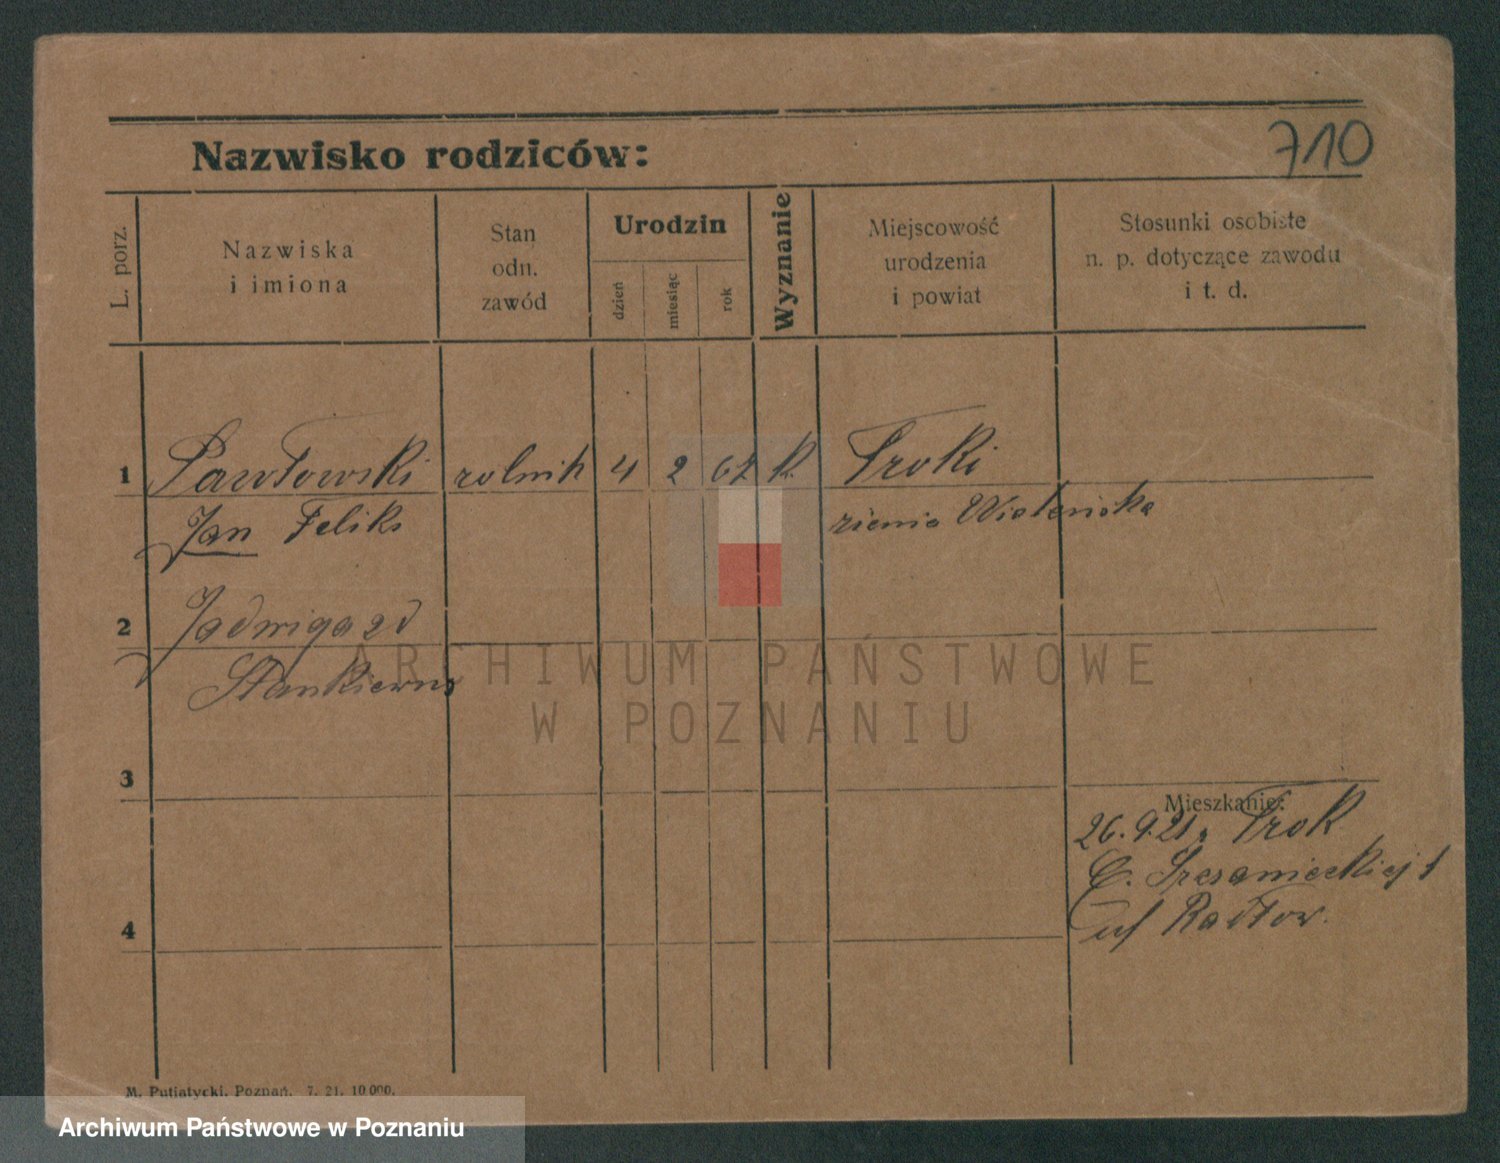 710
Nazwisko rodziców:
L. porz.
Nazwiska
i imiona
Stan
odn.
zawód
Urodzin
dzień
miesiąc
rok
Wyznanie
Miejscowość
urodzenia
i powiat
Stosunki osobiste
n. p. dotyczące zawodu
i t. d.
1 Pawłowski rolnik 4 2 67 k. Troki
Jan Feliks ziemia Wileńska
2 Jadwiga zd
Stankiewicz
3
Mieszkanie:
26.9.21. Trok
4
Radłow.
M. Putiatycki, Poznań. 7. 21. 10 000.
ARCHIWUM PAŃSTWOWE
W POZNANIU
Archiwum Państwowe w Poznaniu